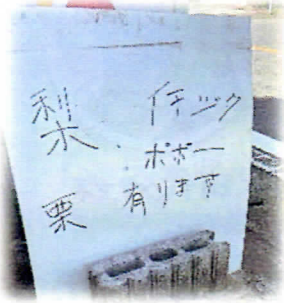 梨 イチジク
・ポポー
栗 有ります